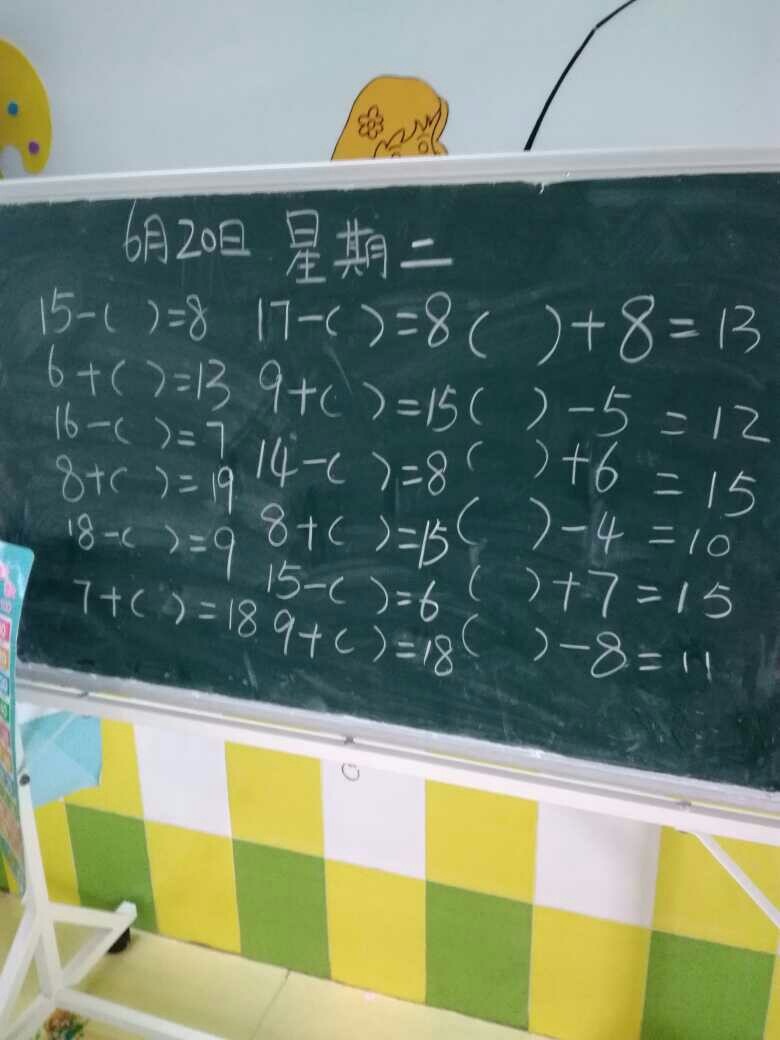 6月20日 星期二
15-( )=8 17-( )=8 ( )+8=13
6+( )=13 9+( )=15 ( )-5=12
16-( )=7 14-( )=8 ( )+6=15
8+( )=19 8+( )=15 ( )-4=10
18-( )=9 15-( )=6 ( )+7=15
7+( )=18 9+( )=18 ( )-8=11